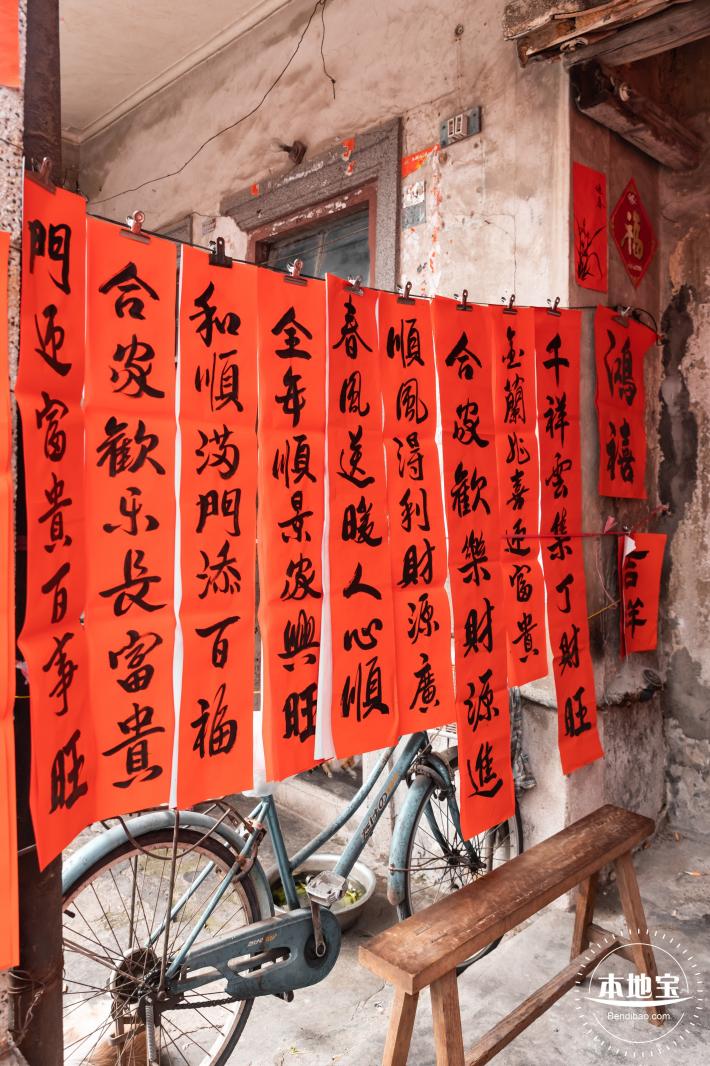 門迎富貴百事旺
合家歡乐長富貴
和順满門添百福
全年順景家興旺
春風送暖人心順
順風得利財源廣
合家歡樂財源進
金蘭兆喜迎富貴
千祥雲集丁財旺
鴻禧
吉祥
福
本地宝
Bendibao.com